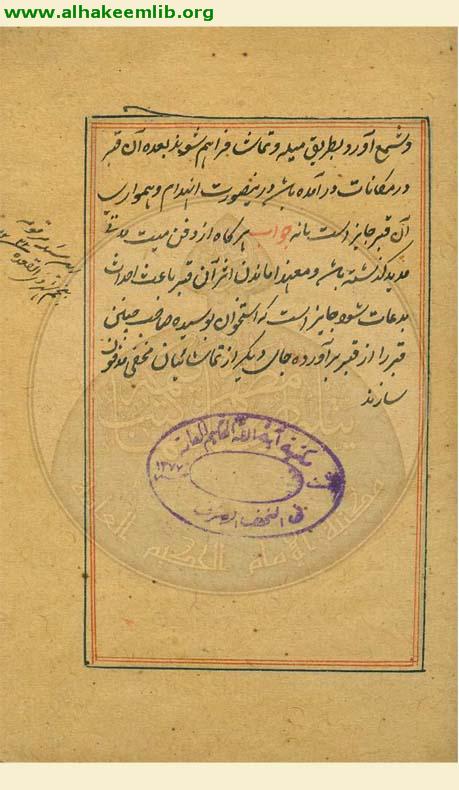 www.alhakeemlib.org
و شمع آورد و بطریق میله و تماشا فراهم شوند بعده آن قبر
در مکانات در آمده باشد درینصورت انهدام و همواری
آن قبر جایز است یا نه جواب هرگاه از دفن میت مدتی
مدید گذشته باشد و معهذا ماندن اثر آن قبر باعث احداث
بدعات شود جایز است که استخوان بوسیده صاحب چنین
قبر را از قبر برآورده جای دیگر از تماشائیان مخفی مدفون
سازند
مکتبة آیة الله الحکیم العامة
۱۳۷۷
فی النجف الاشرف
مكتبة الإمام الحكيم العامة